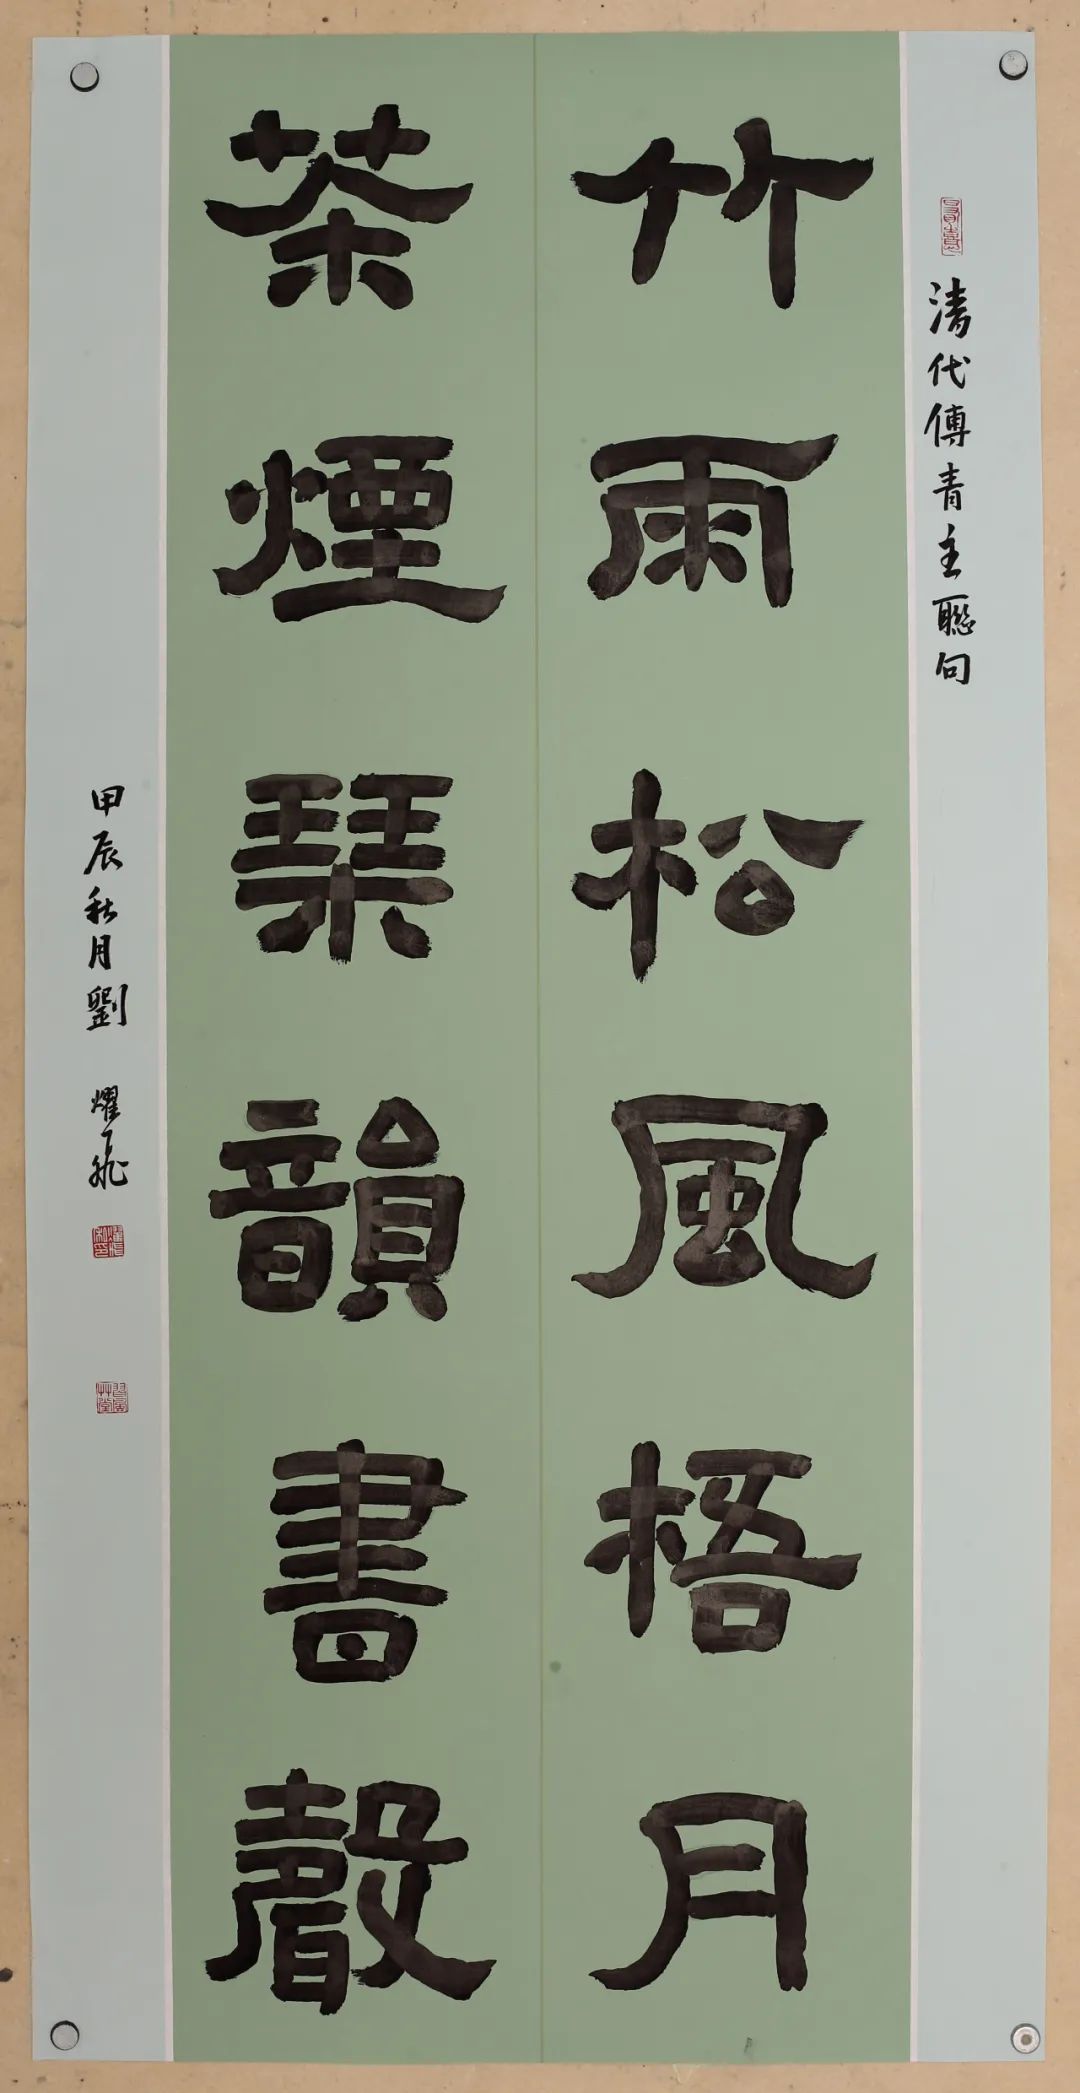 清代傅青主聯句
竹雨松風梧月
茶煙琴韻書聲
甲辰秋月劉耀飛